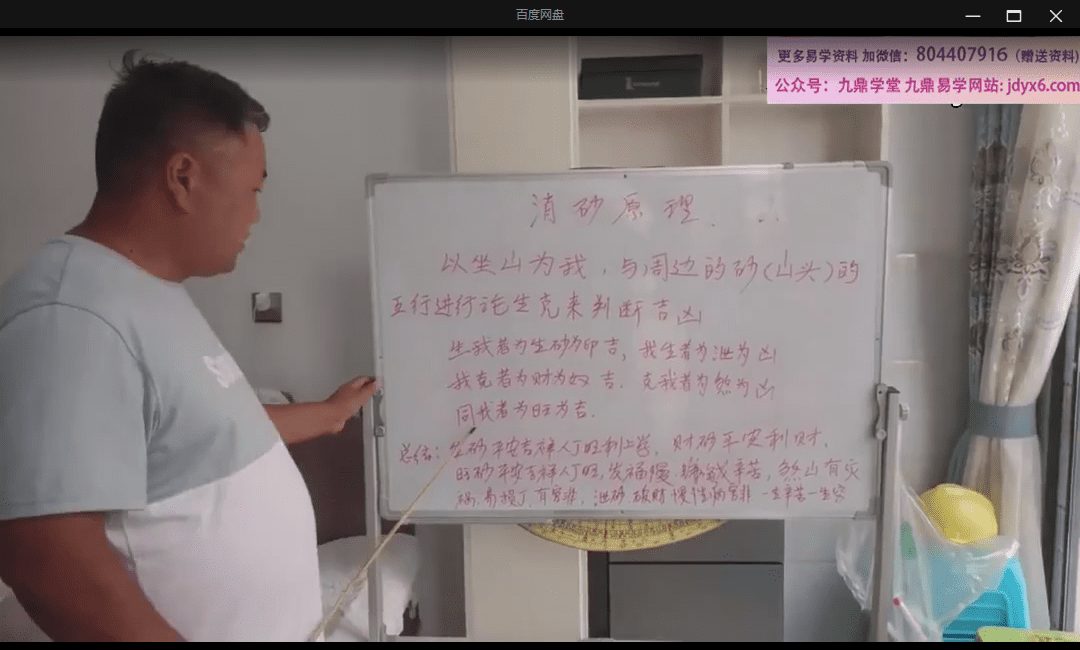 百度网盘
更多易学资料 加微信：804407916（赠送资料）
公众号：九鼎学堂 九鼎易学网站：jdyx6.com
消砂原理
以坐山为我，与周边的砂（山头）的
五行进行论生克来判断吉凶
生我者为生砂为印吉，我生者为泄为凶
我克者为财为奴吉．克我者为煞为凶
同我者为旺为吉．
总结：生砂平安吉祥人丁旺利上学，财砂平安利财，
旺砂平安吉祥人丁旺，发福慢．赚钱辛苦，煞山有灾
祸，易损丁，有官非，泄砂 破财 慢性病官非 一生辛苦一生穷